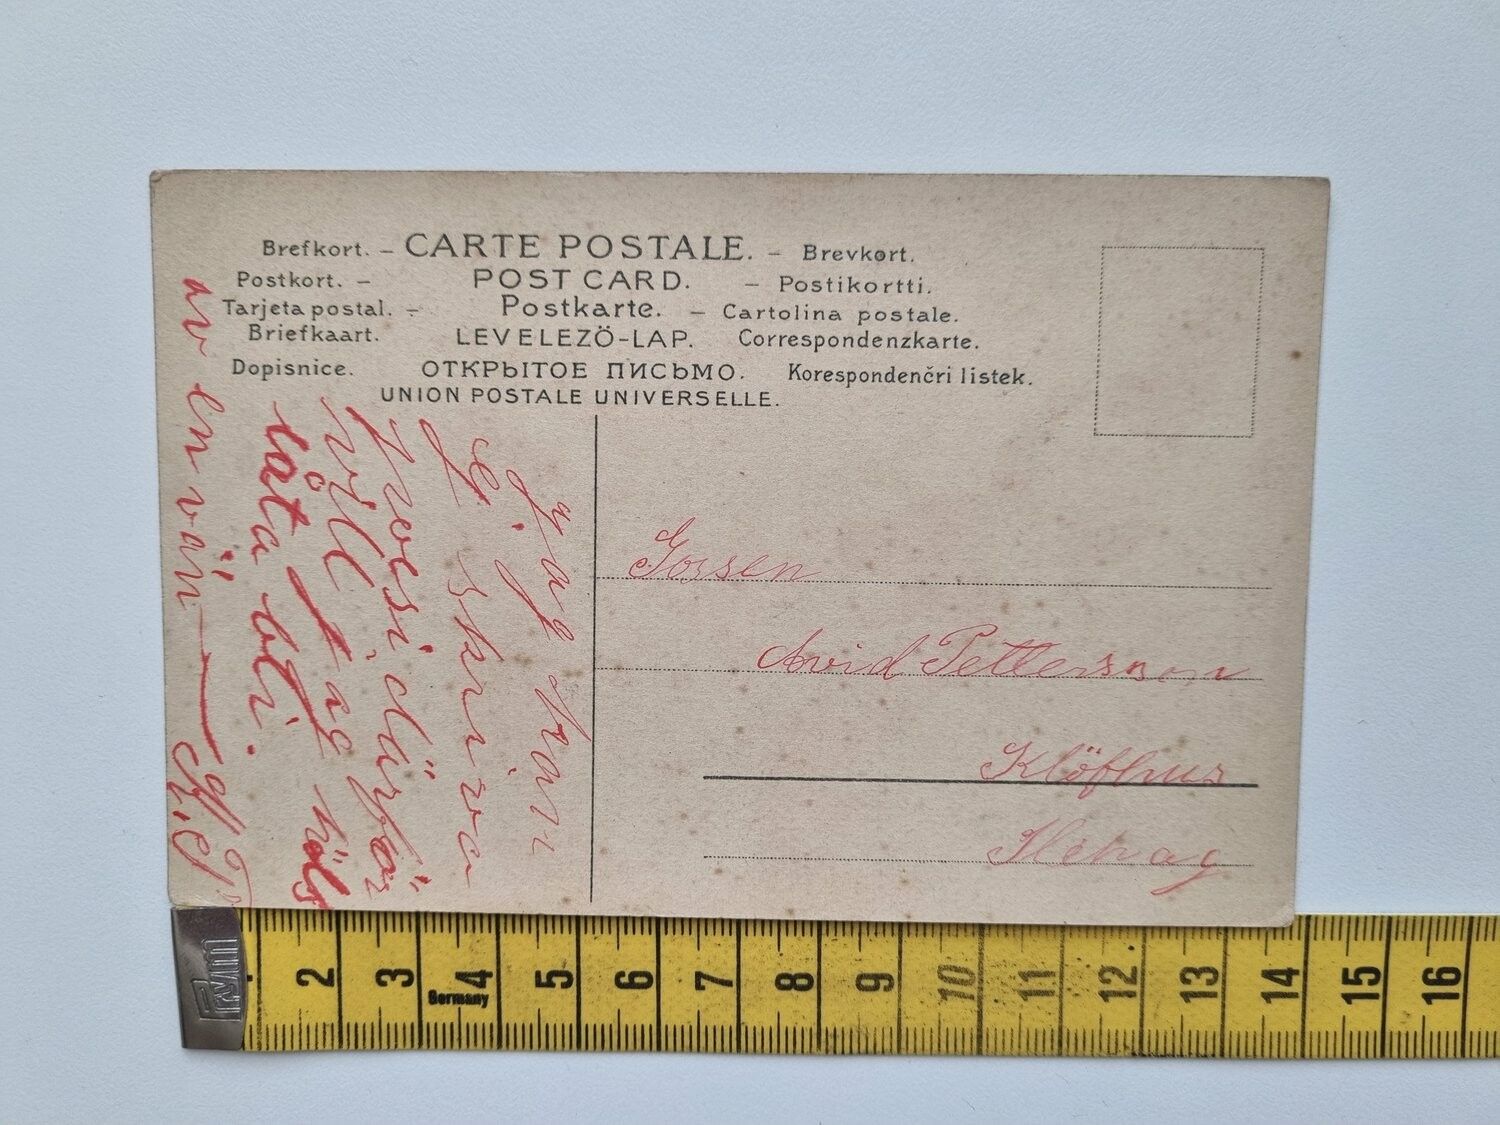 Brefkort. – CARTE POSTALE. – Brevkort.
Postkort. – POST CARD. – Postikortti.
Tarjeta postal. – Postkarte. – Cartolina postale.
Briefkaart. LEVELEZÖ-LAP. Correspondenzkarte.
Dopisnice. ОТКРЫТОЕ ПИСЬМО. Korespondenčri listek.
UNION POSTALE UNIVERSELLE.
Jag kan
ej skriva
poesi därför
vill jag håls
låta bli.
av en vän
Gossen
Arvid Petterson
Klöfhus
Hehag
Prym
2 3 4 5 6 7 8 9 10 11 12 13 14 15 16
Germany